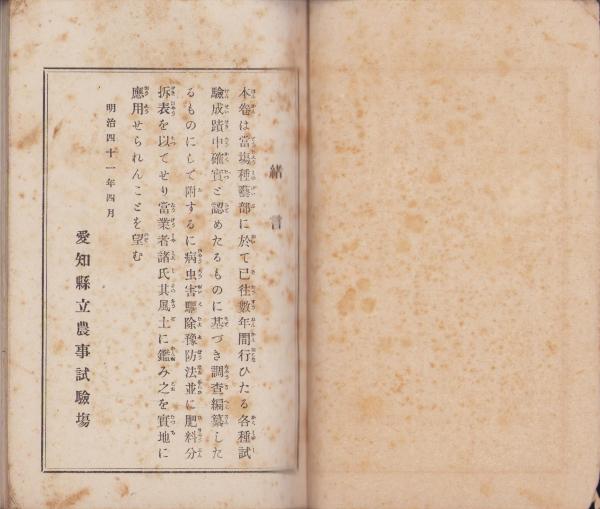 緒言
本卷は當塲種藝部に於て已往數年間行ひたる各種試
驗成蹟中確實と認めたるものに基づき調查編纂した
るものにして附するに病虫害驅除豫防法並に肥料分
拆表を以てせり當業者諸氏其風土に鑑み之を實地に
應用せられんことを望む
明治四十一年四月
愛知縣立農事試驗塲